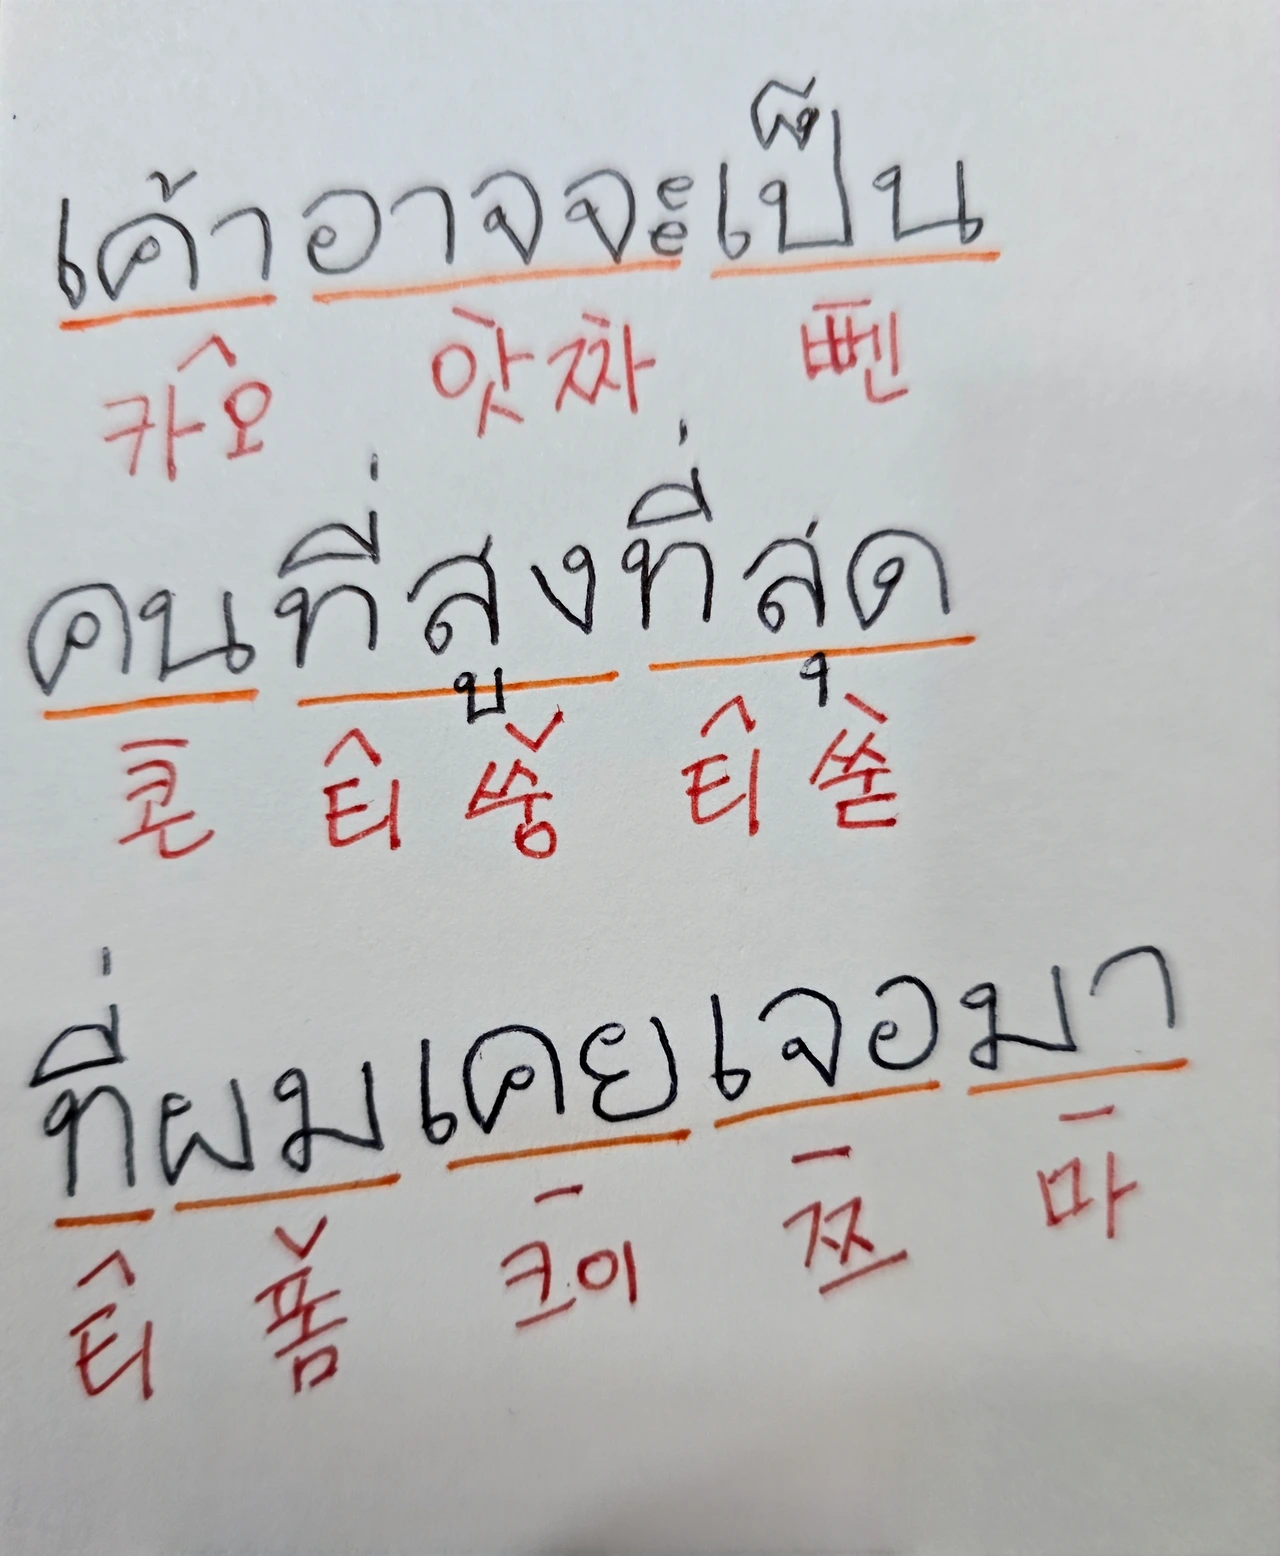 เค้าอาจจะเป็น
카오 앗짜 뻰
คนที่สูงที่สุด
콘 티 쑹 티 쑫
ที่ผมเคยเจอมา
티 폼 크이 쯔 마